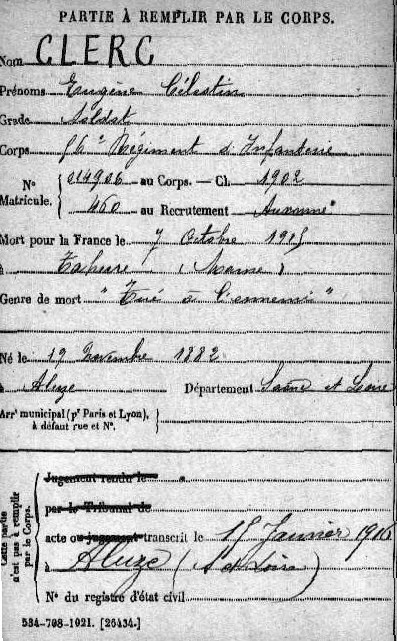 PARTIE À REMPLIR PAR LE CORPS.
Nom CLERC
Prénoms Eugène Célestin
Grade Soldat
Corps 56e Régiment d'Infanterie
No Matricule. 014906 au Corps. — Cl. 1902
460 au Recrutement Auxonne
Mort pour la France le 7 Octobre 1915
à Tahure (Marne)
Genre de mort "Tué à l'ennemi"
Né le 19 novembre 1882
à Aluze Département Saône et Loire
Arrt municipal (pr Paris et Lyon), à défaut rue et No.
Cette partie n'est pas à remplir par le Corps.
Jugement rendu le
par le Tribunal de
acte ou jugement transcrit le 15 Janvier 1916
à Aluze (S et Loire)
No du registre d'état civil
534-708-1921. [26434.]